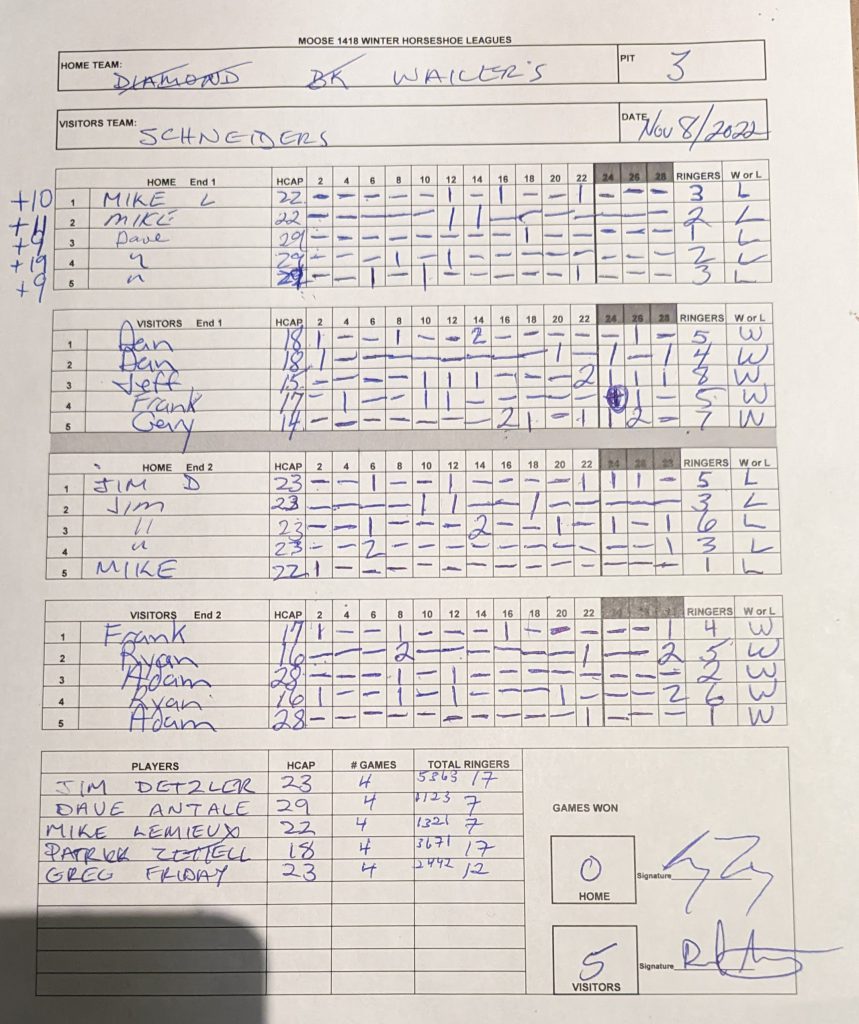 MOOSE 1418 WINTER HORSESHOE LEAGUES
HOME TEAM: DIAMOND BK WAILER'S PIT 3
VISITORS TEAM: SCHNEIDERS DATE Nov 8/2022
HOME End 1 HCAP 2 4 6 8 10 12 14 16 18 20 22 24 26 28 RINGERS W or L
+10 1 MIKE L 22 - - - - - 1 - 1 - - 1 - - - 3 L
+4 2 MIKE 22 - - - - - 1 1 - - - - - - - 2 L
+9 3 Dave 29 - - - - - - - - 1 - - - - - 1 L
+19 4 " 29 - - - 1 - 1 - - - - - - - - 2 L
+9 5 " 29 - - 1 - 1 - - - - - 1 - - - 3 L
VISITORS End 1 HCAP 2 4 6 8 10 12 14 16 18 20 22 24 26 28 RINGERS W or L
1 Dan 18 1 - - 1 - - 2 - - - - - 1 - 5 W
2 Dan 18 1 - - - - - - - - 1 - 1 - 1 4 W
3 Jeff 15 - - - - 1 1 1 - - - 2 1 1 1 8 W
4 Frank 17 - 1 - - 1 1 - - - - - 1 1 - 5 W
5 Gery 14 - - - - - - - 2 1 - 1 1 2 - 7 W
HOME End 2 HCAP 2 4 6 8 10 12 14 16 18 20 22 24 26 28 RINGERS W or L
1 JIM D 23 - - 1 - - 1 - - - - 1 1 1 - 5 L
2 Jim 23 - - - - 1 1 - - 1 - - - - - 3 L
3 11 23 - - 1 - - - 2 - - 1 - 1 - 1 6 L
4 " 23 - - 2 - - - - - - - - - - 1 3 L
5 MIKE 22 1 - - - - - - - - - - - - - 1 L
VISITORS End 2 HCAP 2 4 6 8 10 12 14 16 18 20 22 RINGERS W or L
1 Frank 17 1 - - 1 - - - 1 - - - - - 1 4 W
2 Ryan 16 - - - 2 - - - - - - 1 - - 2 5 W
3 Adam 28 - - - 1 - 1 - - - - - - - - 2 W
4 Ryan 16 1 - - 1 - 1 - - - 1 - - - 2 6 W
5 Adam 28 - - - - - - - - - - 1 - - - 1 W
PLAYERS HCAP # GAMES TOTAL RINGERS
JIM DETZLER 23 4 5363 17
DAVE ANTALE 29 4 1123 7
MIKE LEMIEUX 22 4 1321 7
PATRICK ZETTELL 18 4 3671 17
GREG FRIDAY 23 4 2442 12
GAMES WON
0
HOME
Signature
5
VISITORS
Signature